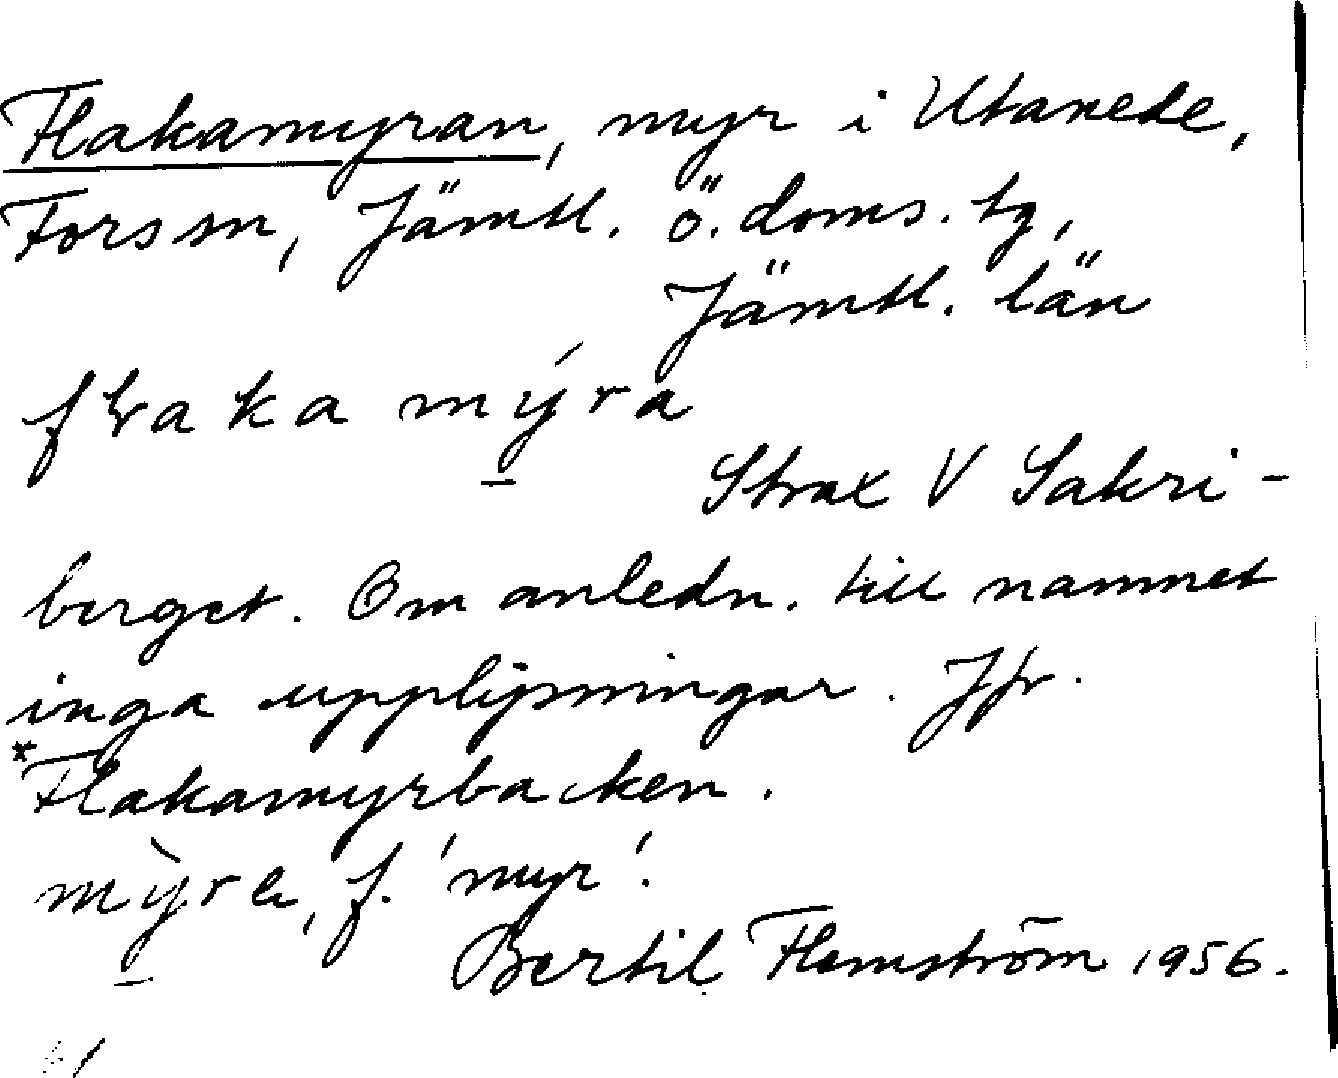 Flakamyran, myr i Utanede,
Fors sn, Jämtl. ö. doms. tg,
Jämtl. län
flaka mýra
Strax V Sakri-
berget. Om anledn. till namnet
inga upplysningar. Jfr.
*Flakamyrbacken.
mỳra, f. 'myr'.
Bertil Flemström 1956.